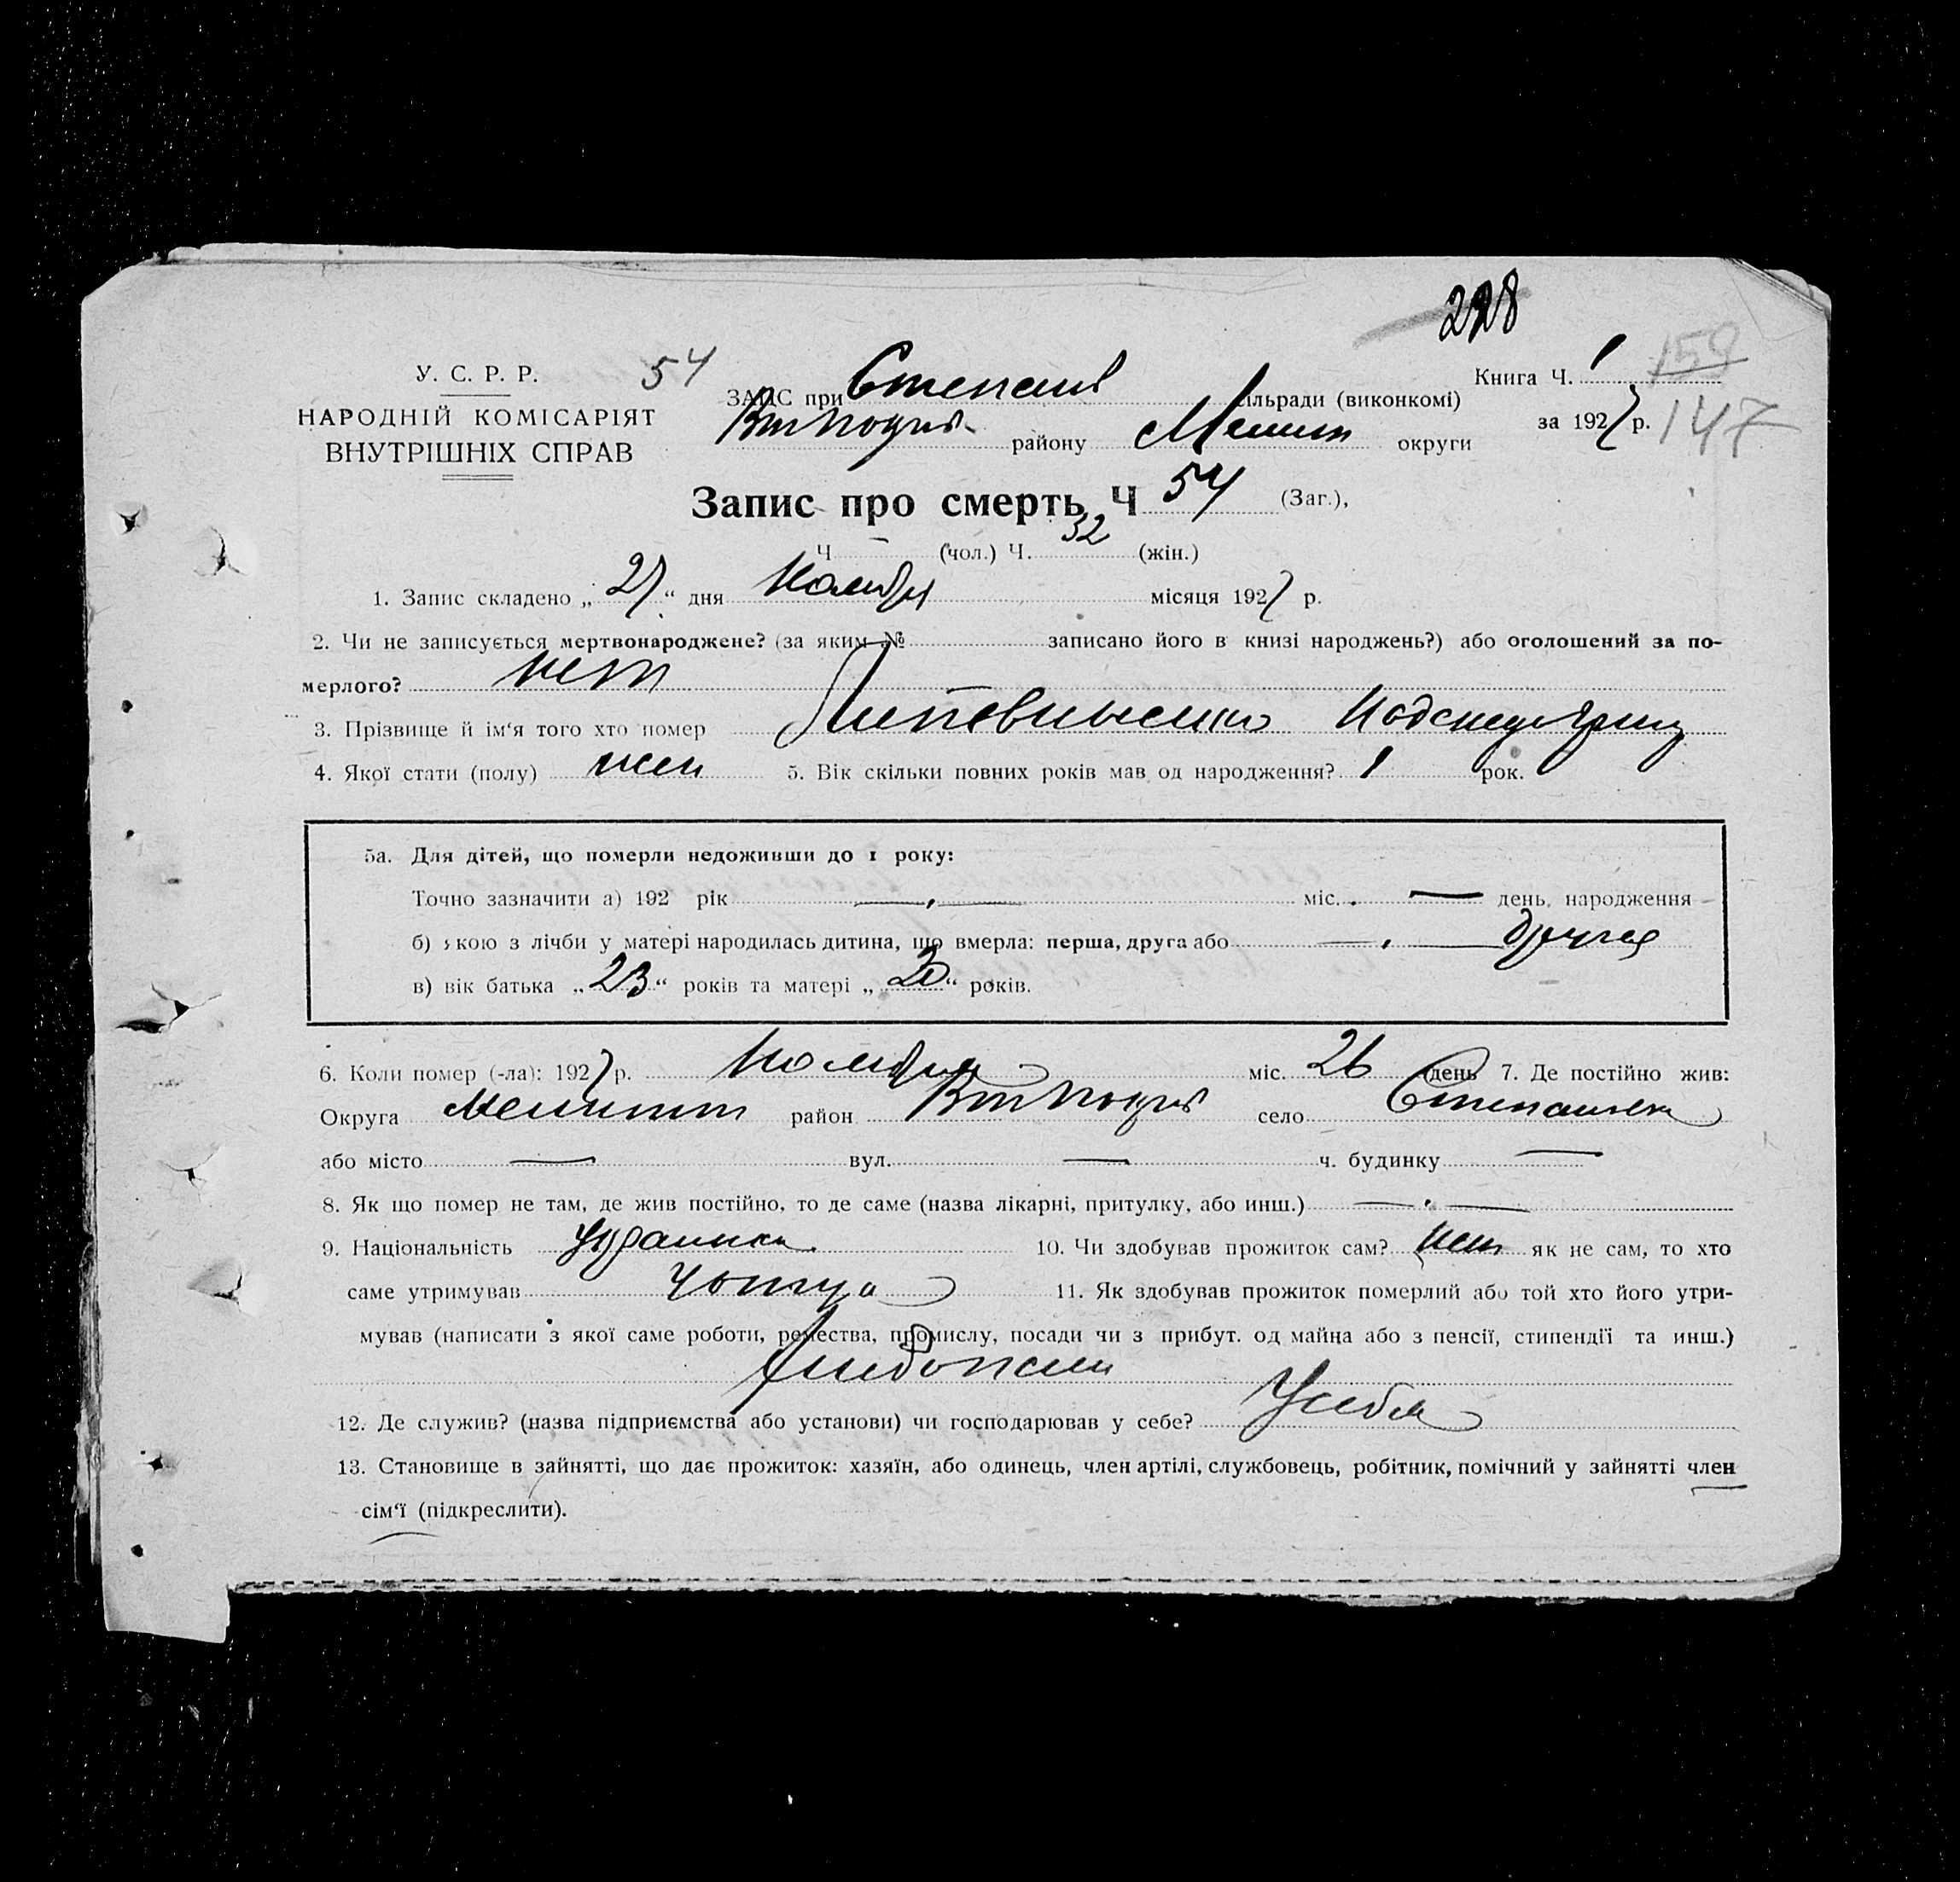 228
У. С. Р. Р.
НАРОДНІЙ КОМІСАРІЯТ
ВНУТРІШНІХ СПРАВ
54
ЗАГС при Степанів сільради (виконкомі)
району Меліт округи
Книга Ч. 1 159
за 1927 р. 147
Запис про смерть Ч 54 (Заг.),
Ч – (чол.) Ч. 32 (жін.)
1. Запис складено „27“ дня Ноября місяця 1927 р.
2. Чи не записується мертвонароджене? (за яким № записано його в книзі народжень?) або оголошений за по-
мерлого? нет
3. Прізвище й ім‘я того хто помер Литвиненко
4. Якої стати (полу) жен 5. Вік скільки повних років мав од народження? 1 рок.
5а. Для дітей, що померли недоживши до 1 року:
Точно зазначити а) 192 рік — міс. — день народження
б) якою з лічби у матері народилась дитина, що вмерла: перша, друга або — другая
в) вік батька „23“ років та матері „20“ років.
6. Коли помер (-ла): 1927 р. Ноября міс. 26 день 7. Де постійно жив:
Округа Мелитоп район село Степановка
або місто — вул. — ч. будинку —
8. Як що помер не там, де жив постійно, то де саме (назва лікарні, притулку, або инш.) —
9. Національність Украинка 10. Чи здобував прожиток сам? нет як не сам, то хто
саме утримував У отца 11. Як здобував прожиток померлий або той хто його утри-
мував (написати з якої саме роботи, ремества, промислу, посади чи з прибут. од майна або з пенсії, стипендії та инш.)
Хлебопаш
12. Де служив? (назва підприємства або установи) чи господарював у себе? У себя
13. Становище в зайнятті, що дає прожиток: хазяїн, або одинець, член артілі, службовець, робітник, помічний у зайнятті член
сім‘ї (підкреслити).